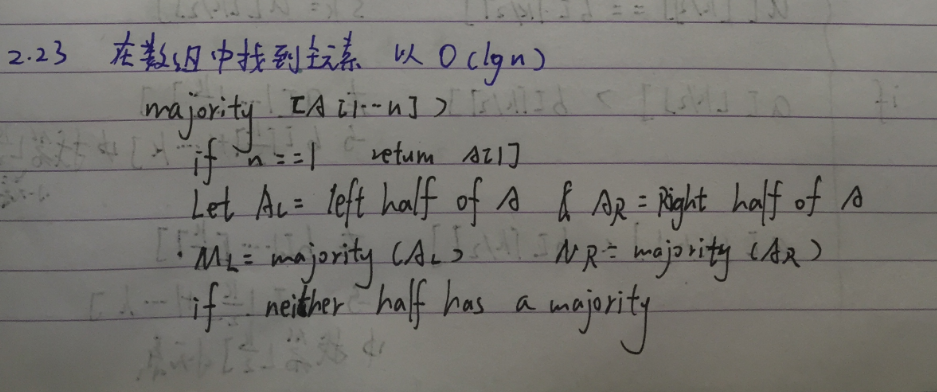 2.23 在数组中找到主元素 以 O(lgn)
majority [A[1--n])
if n==1 return A[1]
Let AL = left half of A & AR = Right half of A
ML = majority (AL) NR = majority (AR)
if neither half has a majority